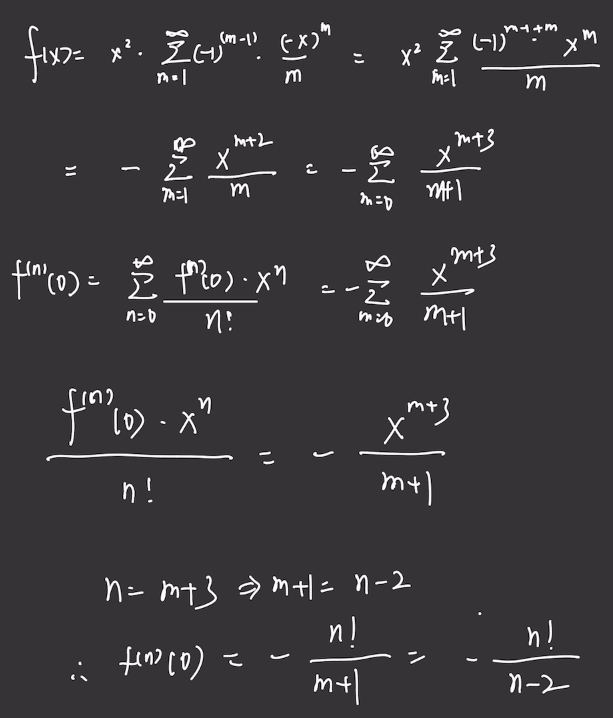 f(x) = x² · ∑_{m=1}^{∞} (-1)^{(m-1)} · \frac{(-x)^m}{m} = x² ∑_{m=1}^{∞} \frac{(-1)^{m-1+m} x^m}{m}
= - ∑_{m=1}^{∞} \frac{x^{m+2}}{m} = - ∑_{m=0}^{∞} \frac{x^{m+3}}{m+1}
f^{(n)}(0) = ∑_{n=0}^{∞} \frac{f^{(n)}(0) · x^n}{n!} = - ∑_{m=0}^{∞} \frac{x^{m+3}}{m+1}
\frac{f^{(n)}(0) · x^n}{n!} = - \frac{x^{m+3}}{m+1}
n = m+3 ⇒ m+1 = n-2
∴ f^{(n)}(0) = - \frac{n!}{m+1} = - \frac{n!}{n-2}